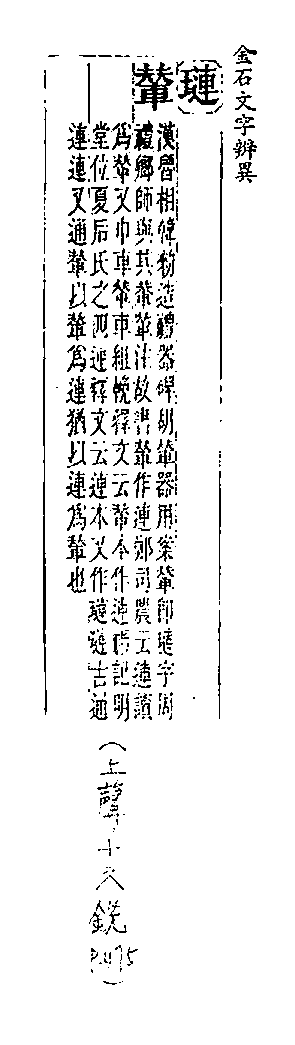 金石文字辨異
璉
輦
漢魯相韓勑造禮器碑胡輦器用案輦卽璉字周
禮鄉師與其輂輦注故書輦作連鄭司農云連讀
爲輦又巾車輦車組輓釋文云輦本作連禮記明
堂位夏后氏之四連釋文云連本又作璉璉古通
連連又通輦以輦爲連猶以連爲輦也
(上聲十六銑 P.475)